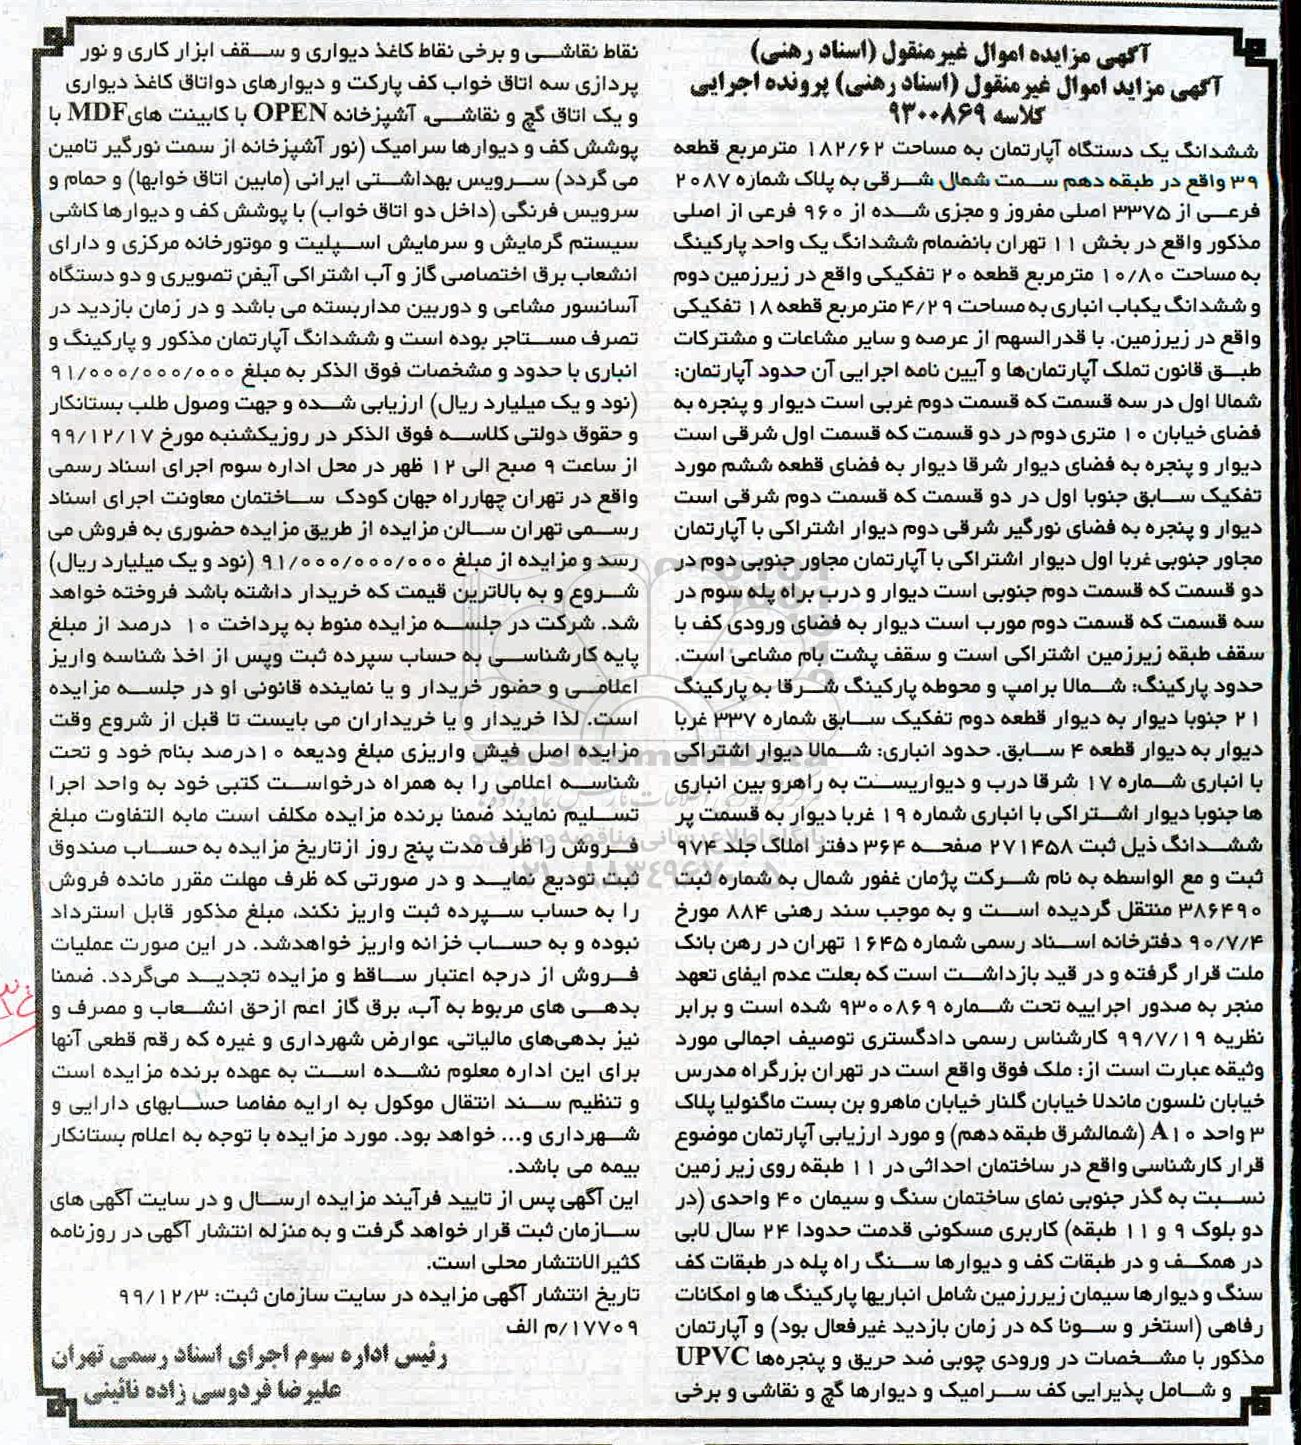 آگهی مزایده اموال غیرمنقول (اسناد رهنی)
آگهی مزاید اموال غیرمنقول (اسناد رهنی) پرونده اجرایی
کلاسه ۹۳۰۰۸۶۹
ششدانگ یک دستگاه آپارتمان به مساحت ۱۸۲/۶۲ مترمربع قطعه
۳۹ واقع در طبقه دهم سمت شمال شرقی به پلاک شماره ۲۰۸۷
فرعی از ۳۳۷۵ اصلی مفروز و مجزی شده از ۹۶۰ فرعی از اصلی
مذکور واقع در بخش ۱۱ تهران بانضمام ششدانگ یک واحد پارکینگ
به مساحت ۱۰/۸۰ مترمربع قطعه ۲۰ تفکیکی واقع در زیرزمین دوم
و ششدانگ یکباب انباری به مساحت ۴/۲۹ مترمربع قطعه ۱۸ تفکیکی
واقع در زیرزمین. با قدرالسهم از عرصه و سایر مشاعات و مشترکات
طبق قانون تملک آپارتمان‌ها و آیین نامه اجرایی آن حدود آپارتمان:
شمالا اول در سه قسمت که قسمت دوم غربی است دیوار و پنجره به
فضای خیابان ۱۰ متری دوم در دو قسمت که قسمت اول شرقی است
دیوار و پنجره به فضای دیوار شرقا دیوار به فضای قطعه ششم مورد
تفکیک سابق جنوبا اول در دو قسمت که قسمت دوم شرقی است
دیوار و پنجره به فضای نورگیر شرقی دوم دیوار اشتراکی با آپارتمان
مجاور جنوبی غربا اول دیوار اشتراکی با آپارتمان مجاور جنوبی دوم در
دو قسمت که قسمت دوم جنوبی است دیوار و درب براه پله سوم در
سه قسمت که قسمت دوم مورب است دیوار به فضای ورودی کف با
سقف طبقه زیرزمین اشتراکی است و سقف پشت بام مشاعی است.
حدود پارکینگ: شمالا برامپ و محوطه پارکینگ شرقا به پارکینگ
۲۱ جنوبا دیوار به دیوار قطعه دوم تفکیک سابق شماره ۳۳۷ غربا
دیوار به دیوار قطعه ۴ سابق. حدود انباری: شمالا دیوار اشتراکی
با انباری شماره ۱۷ شرقا درب و دیواریست به راهرو بین انباری
ها جنوبا دیوار اشتراکی با انباری شماره ۱۹ غربا دیوار به قسمت پر
ششدانگ ذیل ثبت ۲۷۱۴۵۸ صفحه ۳۶۴ دفتر املاک جلد ۹۷۴
ثبت و مع الواسطه به نام شرکت پژمان غفور شمال به شماره ثبت
۳۸۶۴۹۰ منتقل گردیده است و به موجب سند رهنی ۸۸۴ مورخ
۹۰/۷/۴ دفترخانه اسناد رسمی شماره ۱۶۴۵ تهران در رهن بانک
ملت قرار گرفته و در قید بازداشت است که بعلت عدم ایفای تعهد
منجر به صدور اجراییه تحت شماره ۹۳۰۰۸۶۹ شده است و برابر
نظریه ۹۹/۷/۱۹ کارشناس رسمی دادگستری توصیف اجمالی مورد
وثیقه عبارت است از: ملک فوق واقع است در تهران بزرگراه مدرس
خیابان نلسون ماندلا خیابان گلنار خیابان ماهرو بن بست ماگنولیا پلاک
۳ واحد A۱۰ (شمالشرق طبقه دهم) و مورد ارزیابی آپارتمان موضوع
قرار کارشناسی واقع در ساختمان احداثی در ۱۱ طبقه روی زیر زمین
نسبت به گذر جنوبی نمای ساختمان سنگ و سیمان ۴۰ واحدی (در
دو بلوک ۹ و ۱۱ طبقه) کاربری مسکونی قدمت حدودا ۲۴ سال لابی
در همکف و در طبقات کف و دیوارها سنگ راه پله در طبقات کف
سنگ و دیوارها سیمان زیررزمین شامل انباریها پارکینگ ها و امکانات
رفاهی (استخر و سونا که در زمان بازدید غیرفعال بود) و آپارتمان
مذکور با مشخصات در ورودی چوبی ضد حریق و پنجره‌ها UPVC
و شامل پذیرایی کف سرامیک و دیوارها گچ و نقاشی و برخی
نقاط نقاشی و برخی نقاط کاغذ دیواری و سقف ابزار کاری و نور
پردازی سه اتاق خواب کف پارکت و دیوارهای دواتاق کاغذ دیواری
و یک اتاق گچ و نقاشی، آشپزخانه OPEN با کابینت های MDF با
پوشش کف و دیوارها سرامیک (نور آشپزخانه از سمت نورگیر تامین
می گردد) سرویس بهداشتی ایرانی (مابین اتاق خوابها) و حمام و
سرویس فرنگی (داخل دو اتاق خواب) با پوشش کف و دیوارها کاشی
سیستم گرمایش و سرمایش اسپلیت و موتورخانه مرکزی و دارای
انشعاب برق اختصاصی گاز و آب اشتراکی آیفن تصویری و دو دستگاه
آسانسور مشاعی و دوربین مداربسته می باشد و در زمان بازدید در
تصرف مستاجر بوده است و ششدانگ آپارتمان مذکور و پارکینگ و
انباری با حدود و مشخصات فوق الذکر به مبلغ ۹۱/۰۰۰/۰۰۰/۰۰۰
(نود و یک میلیارد ریال) ارزیابی شده و جهت وصول طلب بستانکار
و حقوق دولتی کلاسه فوق الذکر در روزیکشنبه مورخ ۹۹/۱۲/۱۷
از ساعت ۹ صبح الی ۱۲ ظهر در محل اداره سوم اجرای اسناد رسمی
واقع در تهران چهارراه جهان کودک ساختمان معاونت اجرای اسناد
رسمی تهران سالن مزایده از طریق مزایده حضوری به فروش می
رسد و مزایده از مبلغ ۹۱/۰۰۰/۰۰۰/۰۰۰ (نود و یک میلیارد ریال)
شروع و به بالاترین قیمت که خریدار داشته باشد فروخته خواهد
شد. شرکت در جلسه مزایده منوط به پرداخت ۱۰ درصد از مبلغ
پایه کارشناسی به حساب سپرده ثبت وپس از اخذ شناسه واریز
اعلامی و حضور خریدار و یا نماینده قانونی او در جلسه مزایده
است. لذا خریدار و یا خریداران می بایست تا قبل از شروع وقت
مزایده اصل فیش واریزی مبلغ ودیعه ۱۰درصد بنام خود و تحت
شناسه اعلامی را به همراه درخواست کتبی خود به واحد اجرا
تسلیم نمایند ضمنا برنده مزایده مکلف است مابه التفاوت مبلغ
فروش را ظرف مدت پنج روز ازتاریخ مزایده به حساب صندوق
ثبت تودیع نماید و در صورتی که ظرف مهلت مقرر مانده فروش
را به حساب سپرده ثبت واریز نکند، مبلغ مذکور قابل استرداد
نبوده و به حساب خزانه واریز خواهدشد. در این صورت عملیات
فروش از درجه اعتبار ساقط و مزایده تجدید می‌گردد. ضمنا
بدهی های مربوط به آب، برق گاز اعم ازحق انشعاب و مصرف و
نیز بدهی‌های مالیاتی، عوارض شهرداری و غیره که رقم قطعی آنها
برای این اداره معلوم نشده است به عهده برنده مزایده است
و تنظیم سند انتقال موکول به ارایه مفاصا حسابهای دارایی و
شهرداری و... خواهد بود. مورد مزایده با توجه به اعلام بستانکار
بیمه می باشد.
این آگهی پس از تایید فرآیند مزایده ارسال و در سایت آگهی های
سازمان ثبت قرار خواهد گرفت و به منزله انتشار آگهی در روزنامه
کثیرالانتشار محلی است.
تاریخ انتشار آگهی مزایده در سایت سازمان ثبت: ۹۹/۱۲/۳
۱۷۷۰۹/م الف
رئیس اداره سوم اجرای اسناد رسمی تهران
علیرضا فردوسی زاده نائینی